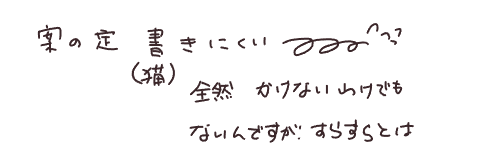 案の定 書きにくい
(猫)
全然 かけないわけでも
ないんですが、すらすらとは